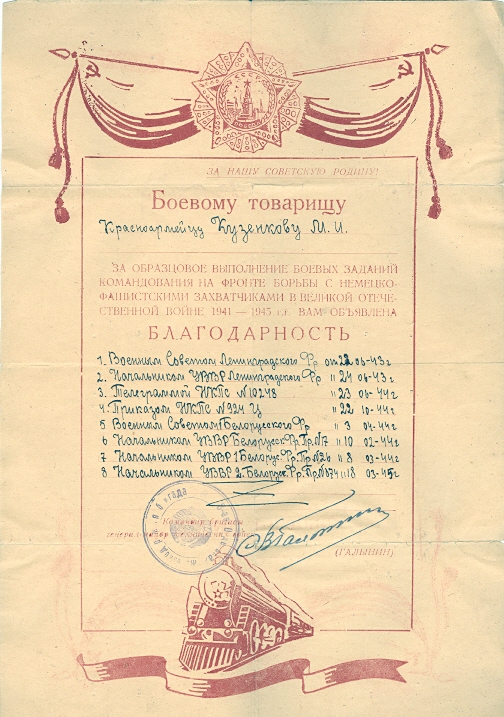 ЗА НАШУ СОВЕТСКУЮ РОДИНУ!
Боевому товарищу
Красноармейцу Кузенкову М. И.
ЗА ОБРАЗЦОВОЕ ВЫПОЛНЕНИЕ БОЕВЫХ ЗАДАНИЙ
КОМАНДОВАНИЯ НА ФРОНТЕ БОРЬБЫ С НЕМЕЦКО-
ФАШИСТСКИМИ ЗАХВАТЧИКАМИ В ВЕЛИКОЙ ОТЕЧЕ-
СТВЕННОЙ ВОЙНЕ 1941—1945 г.г. ВАМ ОБЪЯВЛЕНА
БЛАГОДАРНОСТЬ
1. Военным Советом Ленинградского Фр от 22 06-43 г
2. Начальником УВВР Ленинградского Фр " 24 06-43 г
3. Телеграммой НКПС №10248 " 23 06-44 г
4. Приказом НКПС №924 Ц " 22 10-44 г
5 Военным Советом Белорусского Фр " 3 04-44 г
6 Начальником УВВР Белорусск. Фр. Пр. №7 " 10 02-44 г
7 Начальником УВВР 1 Белорус. Фр. Пр. №26 " 8 03-44 г
8 Начальником УВВР 2. Белорус. Фр. Пр. №374 " 18 03-45 г
Командир бригады
генерал-майор технических войск
(ГАЛЫНИН)